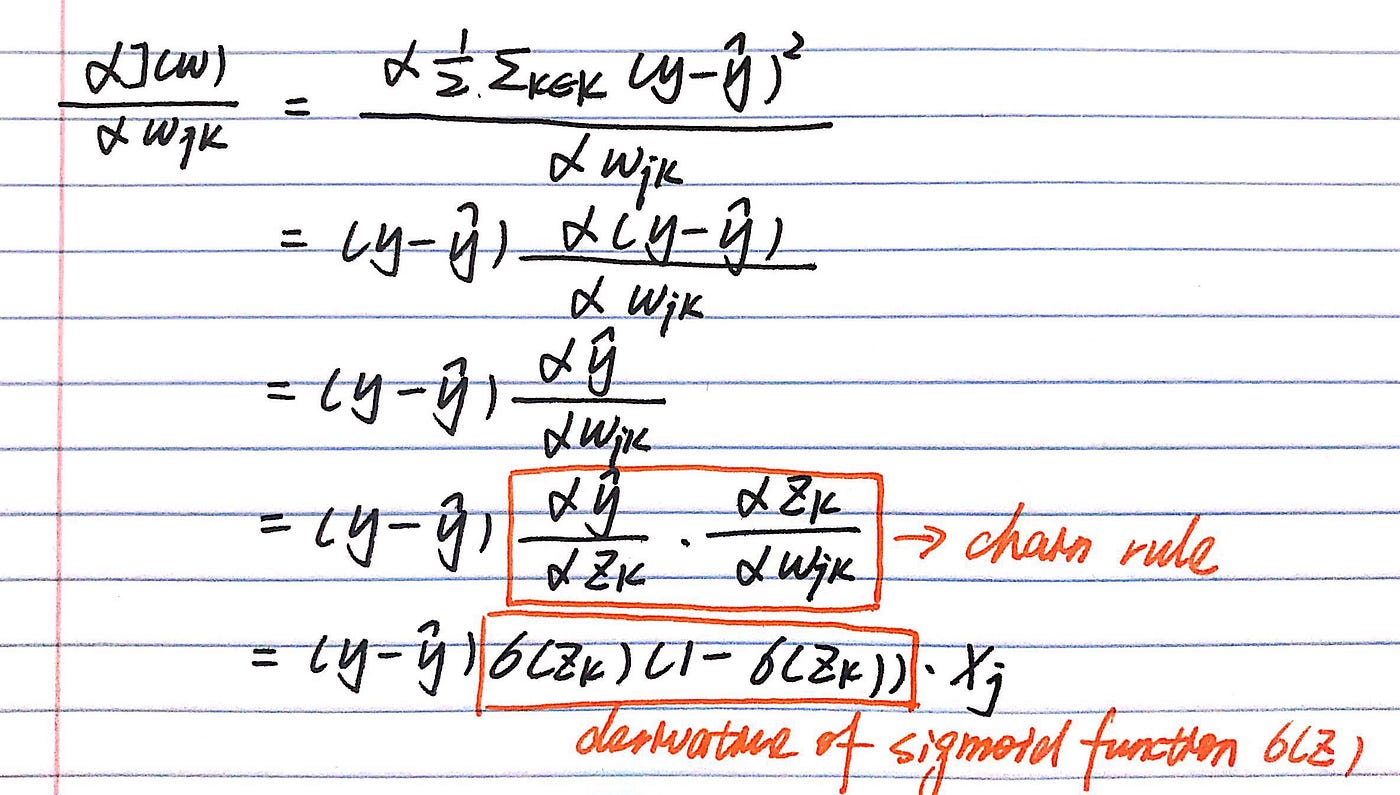 αJ(w) / αw_jk = α 1/2. Σ_k∈K (y-ŷ)² / αw_jk
= (y-ŷ) α(y-ŷ) / αw_jk
= (y-ŷ) αŷ / αw_jk
= (y-ŷ) αŷ / αz_k · αz_k / αw_jk → chain rule
= (y-ŷ) σ(z_k)(1-σ(z_k)) · x_j
derivative of sigmoid function σ(z)